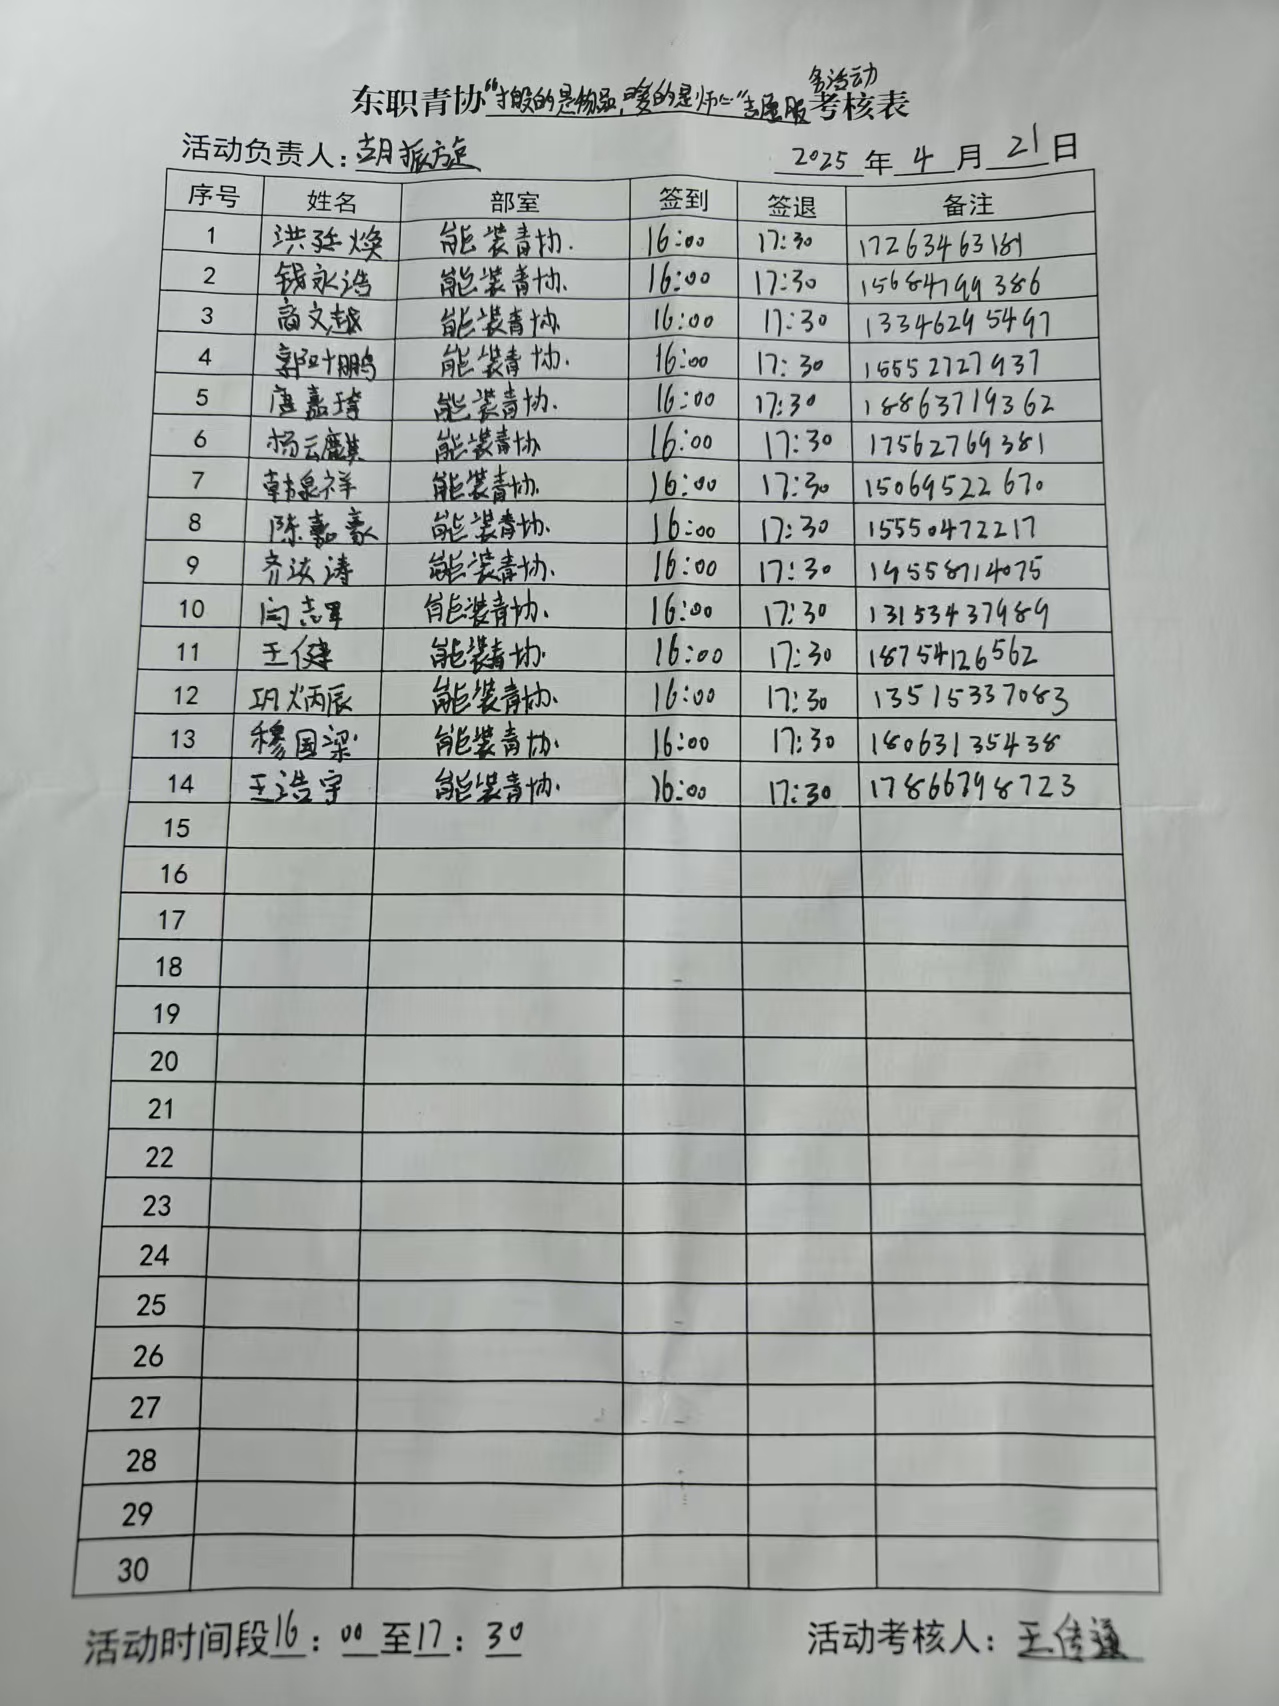 务活动
东职青协“搬的是物品,暖的是师心”志愿服考核表
活动负责人:胡振旋 2025年4月21日
序号 姓名 部室 签到 签退 备注
1 洪廷焕 能装青协. 16:00 17:30 17263463181
2 钱永浩 能装青协. 16:00 17:30 15684799386
3 商文越 能装青协. 16:00 17:30 13346295497
4 郭叶鹏 能装青协. 16:00 17:30 15552727937
5 唐嘉琦 能装青协. 16:00 17:30 18863719362
6 杨云麒 能装青协 16:00 17:30 17562769381
7 韩泉祥 能装青协. 16:00 17:30 15069522670
8 陈嘉豪 能装青协. 16:00 17:30 15550472217
9 齐汝涛 能装青协. 16:00 17:30 19558714075
10 闫志军 能装青协. 16:00 17:30 13153437989
11 王健 能装青协. 16:00 17:30 18754126562
12 巩炳辰 能装青协. 16:00 17:30 13515337083
13 穆国梁 能装青协. 16:00 17:30 18063135438
14 王浩宇 能装青协. 16:00 17:30 17866798723
15
16
17
18
19
20
21
22
23
24
25
26
27
28
29
30
活动时间段16:00至17:30 活动考核人:王传